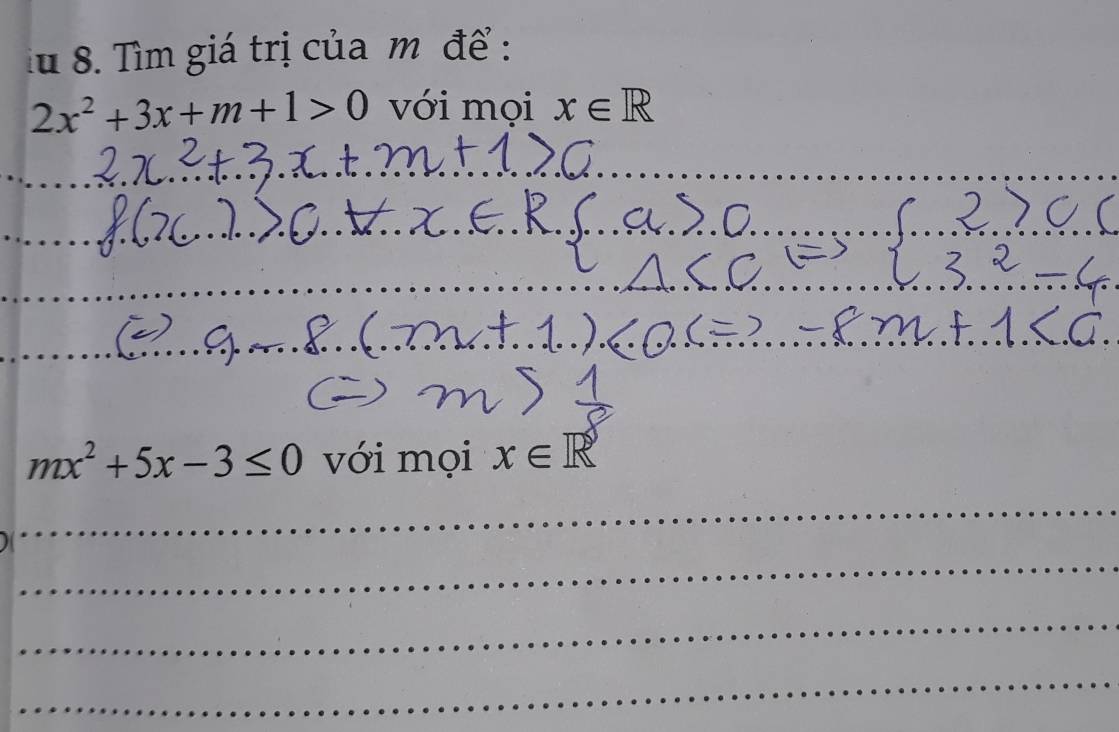 u 8. Tìm giá trị của m để :
2x² + 3x + m + 1 > 0 với mọi x ∈ ℝ
2x² + 3x + m + 1 > 0
f(x) > 0 ∀ x ∈ R { a > 0 { 2 > 0
Δ < 0 <=> 3² - 4
<=> 9 - 8(m + 1) < 0 <=> -8m + 1 < 0
<=> m > 1/8
mx² + 5x - 3 ≤ 0 với mọi x ∈ ℝ